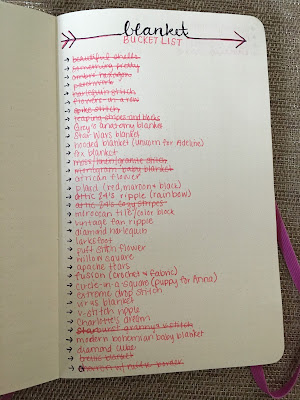 blanket
BUCKET LIST
beautiful shells
something pretty
ombre hexagon
patchwork
harlequin stitch
flowers in a row
spike stitch
leaping stripes and blocks
Grey's anatomy blanket
Star Wars blanket
hooded blanket (unicorn for Adeline)
fox blanket
moss/linen/granite stitch
mini gram baby blanket
african flower
plaid (red, maroon & black)
attic 24's ripple (rainbow)
attic 24's cosy stripes
moroccan tile/color block
vintage fan ripple
diamond harlequin
larksfoot
puff stitch flower
willow square
apache tears
fusion (crochet & fabric)
circle-in-a-square (puppy for Anna)
extreme drop stitch
virus blanket
v-stitch ripple
Charlotte's dream
starburst granny stitch
modern bohemian baby blanket
diamond cube
trellis blanket
chevron w/ border